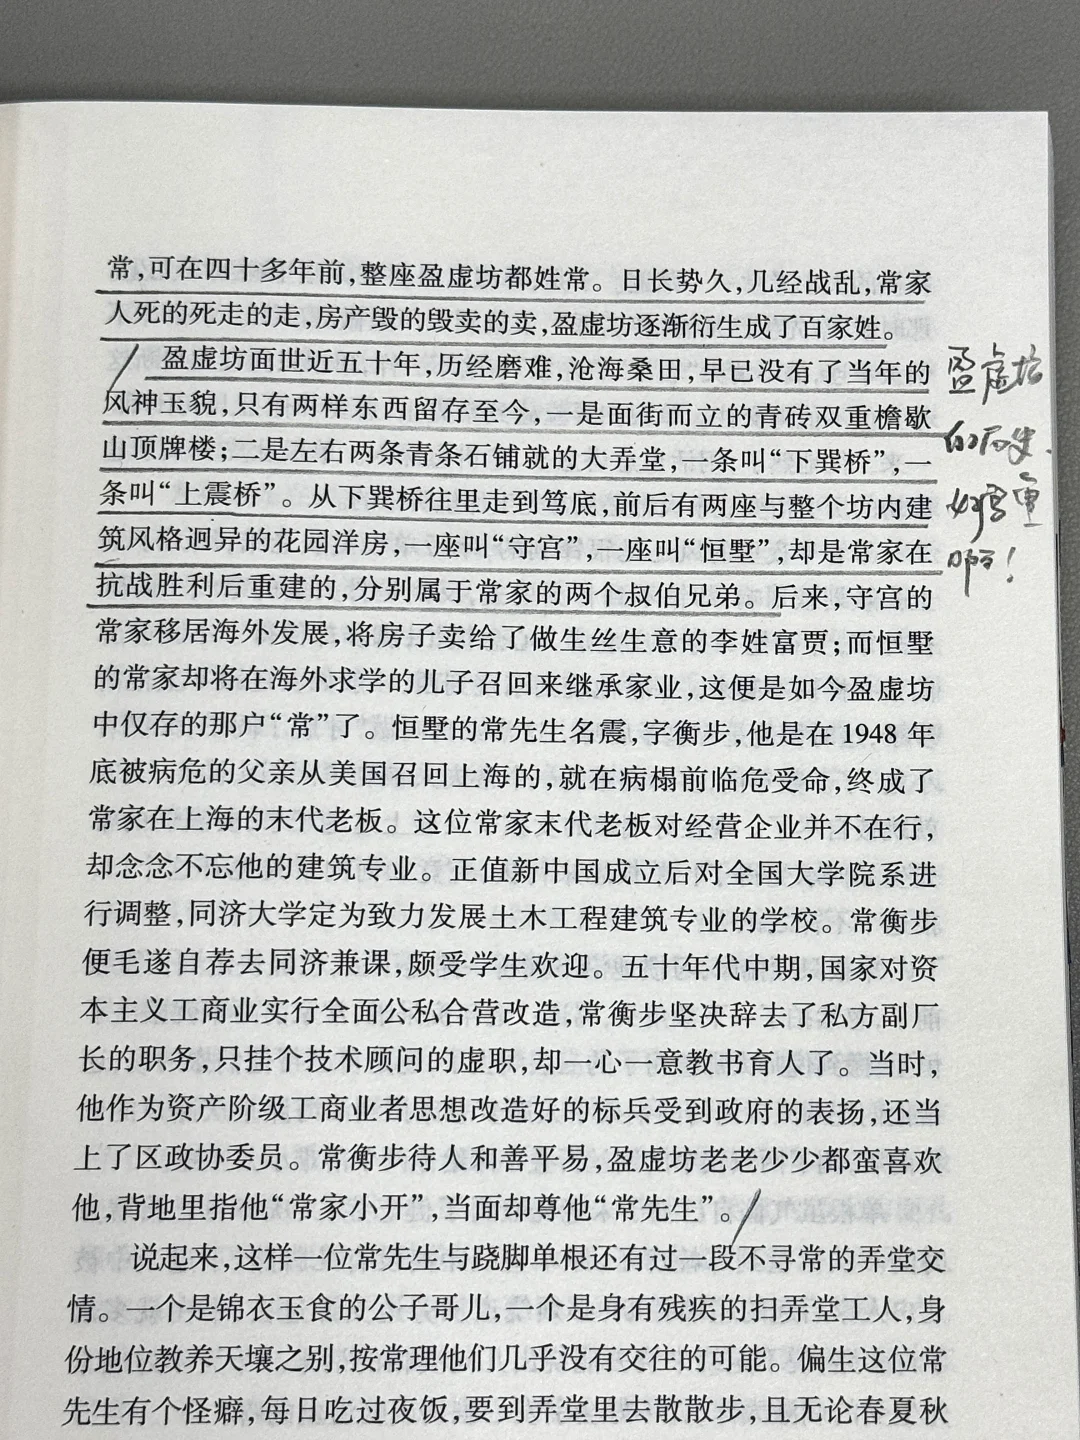 常，可在四十多年前，整座盈虚坊都姓常。日长势久，几经战乱，常家
人死的死走的走，房产毁的毁卖的卖，盈虚坊逐渐衍生成了百家姓。
盈虚坊面世近五十年，历经磨难，沧海桑田，早已没有了当年的
风神玉貌，只有两样东西留存至今，一是面街而立的青砖双重檐歇
山顶牌楼；二是左右两条青条石铺就的大弄堂，一条叫“下巽桥”，一
条叫“上震桥”。从下巽桥往里走到笃底，前后有两座与整个坊内建
筑风格迥异的花园洋房，一座叫“守宫”，一座叫“恒墅”，却是常家在
抗战胜利后重建的，分别属于常家的两个叔伯兄弟。后来，守宫的
常家移居海外发展，将房子卖给了做生丝生意的李姓富贾；而恒墅
的常家却将在海外求学的儿子召回来继承家业，这便是如今盈虚坊
中仅存的那户“常”了。恒墅的常先生名震，字衡步，他是在1948年
底被病危的父亲从美国召回上海的，就在病榻前临危受命，终成了
常家在上海的末代老板。这位常家末代老板对经营企业并不在行，
却念念不忘他的建筑专业。正值新中国成立后对全国大学院系进
行调整，同济大学定为致力发展土木工程建筑专业的学校。常衡步
便毛遂自荐去同济兼课，颇受学生欢迎。五十年代中期，国家对资
本主义工商业实行全面公私合营改造，常衡步坚决辞去了私方副厂
长的职务，只挂个技术顾问的虚职，却一心一意教书育人了。当时，
他作为资产阶级工商业者思想改造好的标兵受到政府的表扬，还当
上了区政协委员。常衡步待人和善平易，盈虚坊老老少少都蛮喜欢
他，背地里指他“常家小开”，当面却尊他“常先生”。
说起来，这样一位常先生与跷脚单根还有过一段不寻常的弄堂交
情。一个是锦衣玉食的公子哥儿，一个是身有残疾的扫弄堂工人，身
份地位教养天壤之别，按常理他们几乎没有交往的可能。偏生这位常
先生有个怪癖，每日吃过夜饭，要到弄堂里去散散步，且无论春夏秋
盈虚坊
的历史
好厚重
啊！